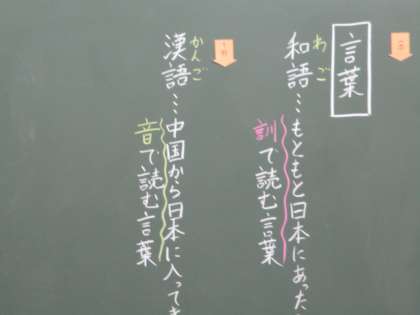 言葉
和語…もともと日本にあった
わご
訓で読む言葉
漢語…中国から日本に入ってき
かんご
音で読む言葉